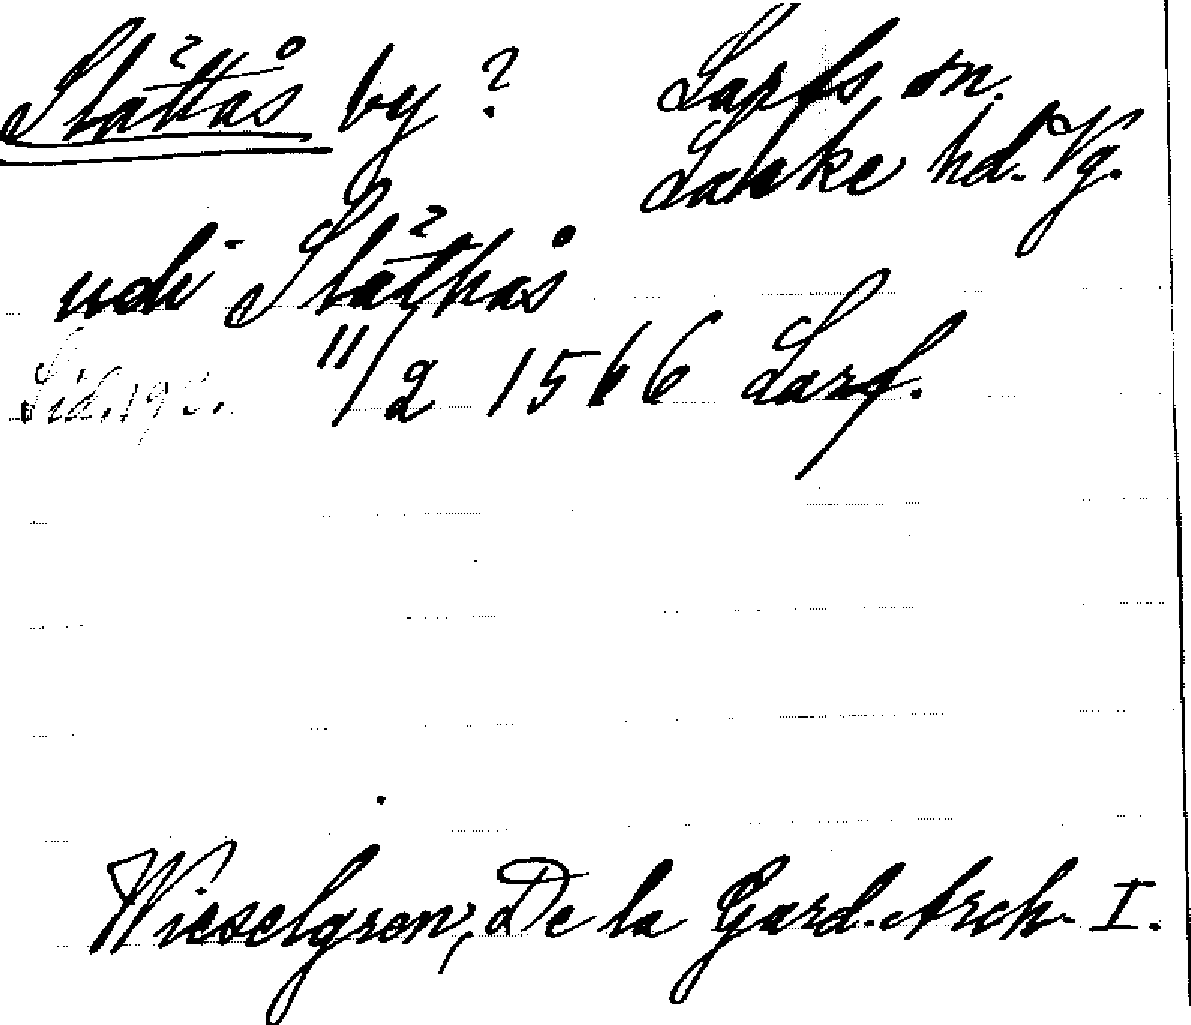 Slättås by? Larfs sn.
Laske hd. Vg.
udi Släthås
Sid. 11/2 1566 Larf.
Wieselgren, De la Gard. Arch. I.